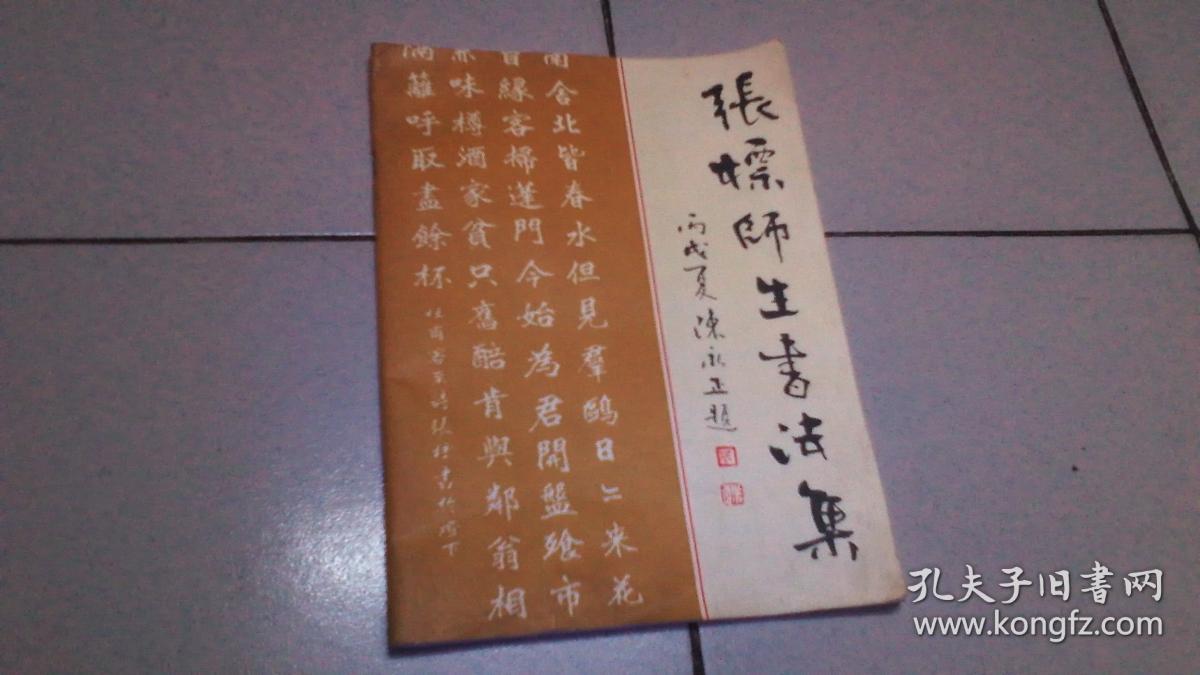 張標師生書法集
丙戌夏陳永正題
南舍北皆春水但見羣鷗日〻来花
曾緣客掃蓬門今始為君開盤飧市
兼味樽酒家貧只舊醅肯與鄰翁相
隔籬呼取盡餘杯
杜甫客至詩張標書於燈下
孔夫子旧书网
www.kongfz.com